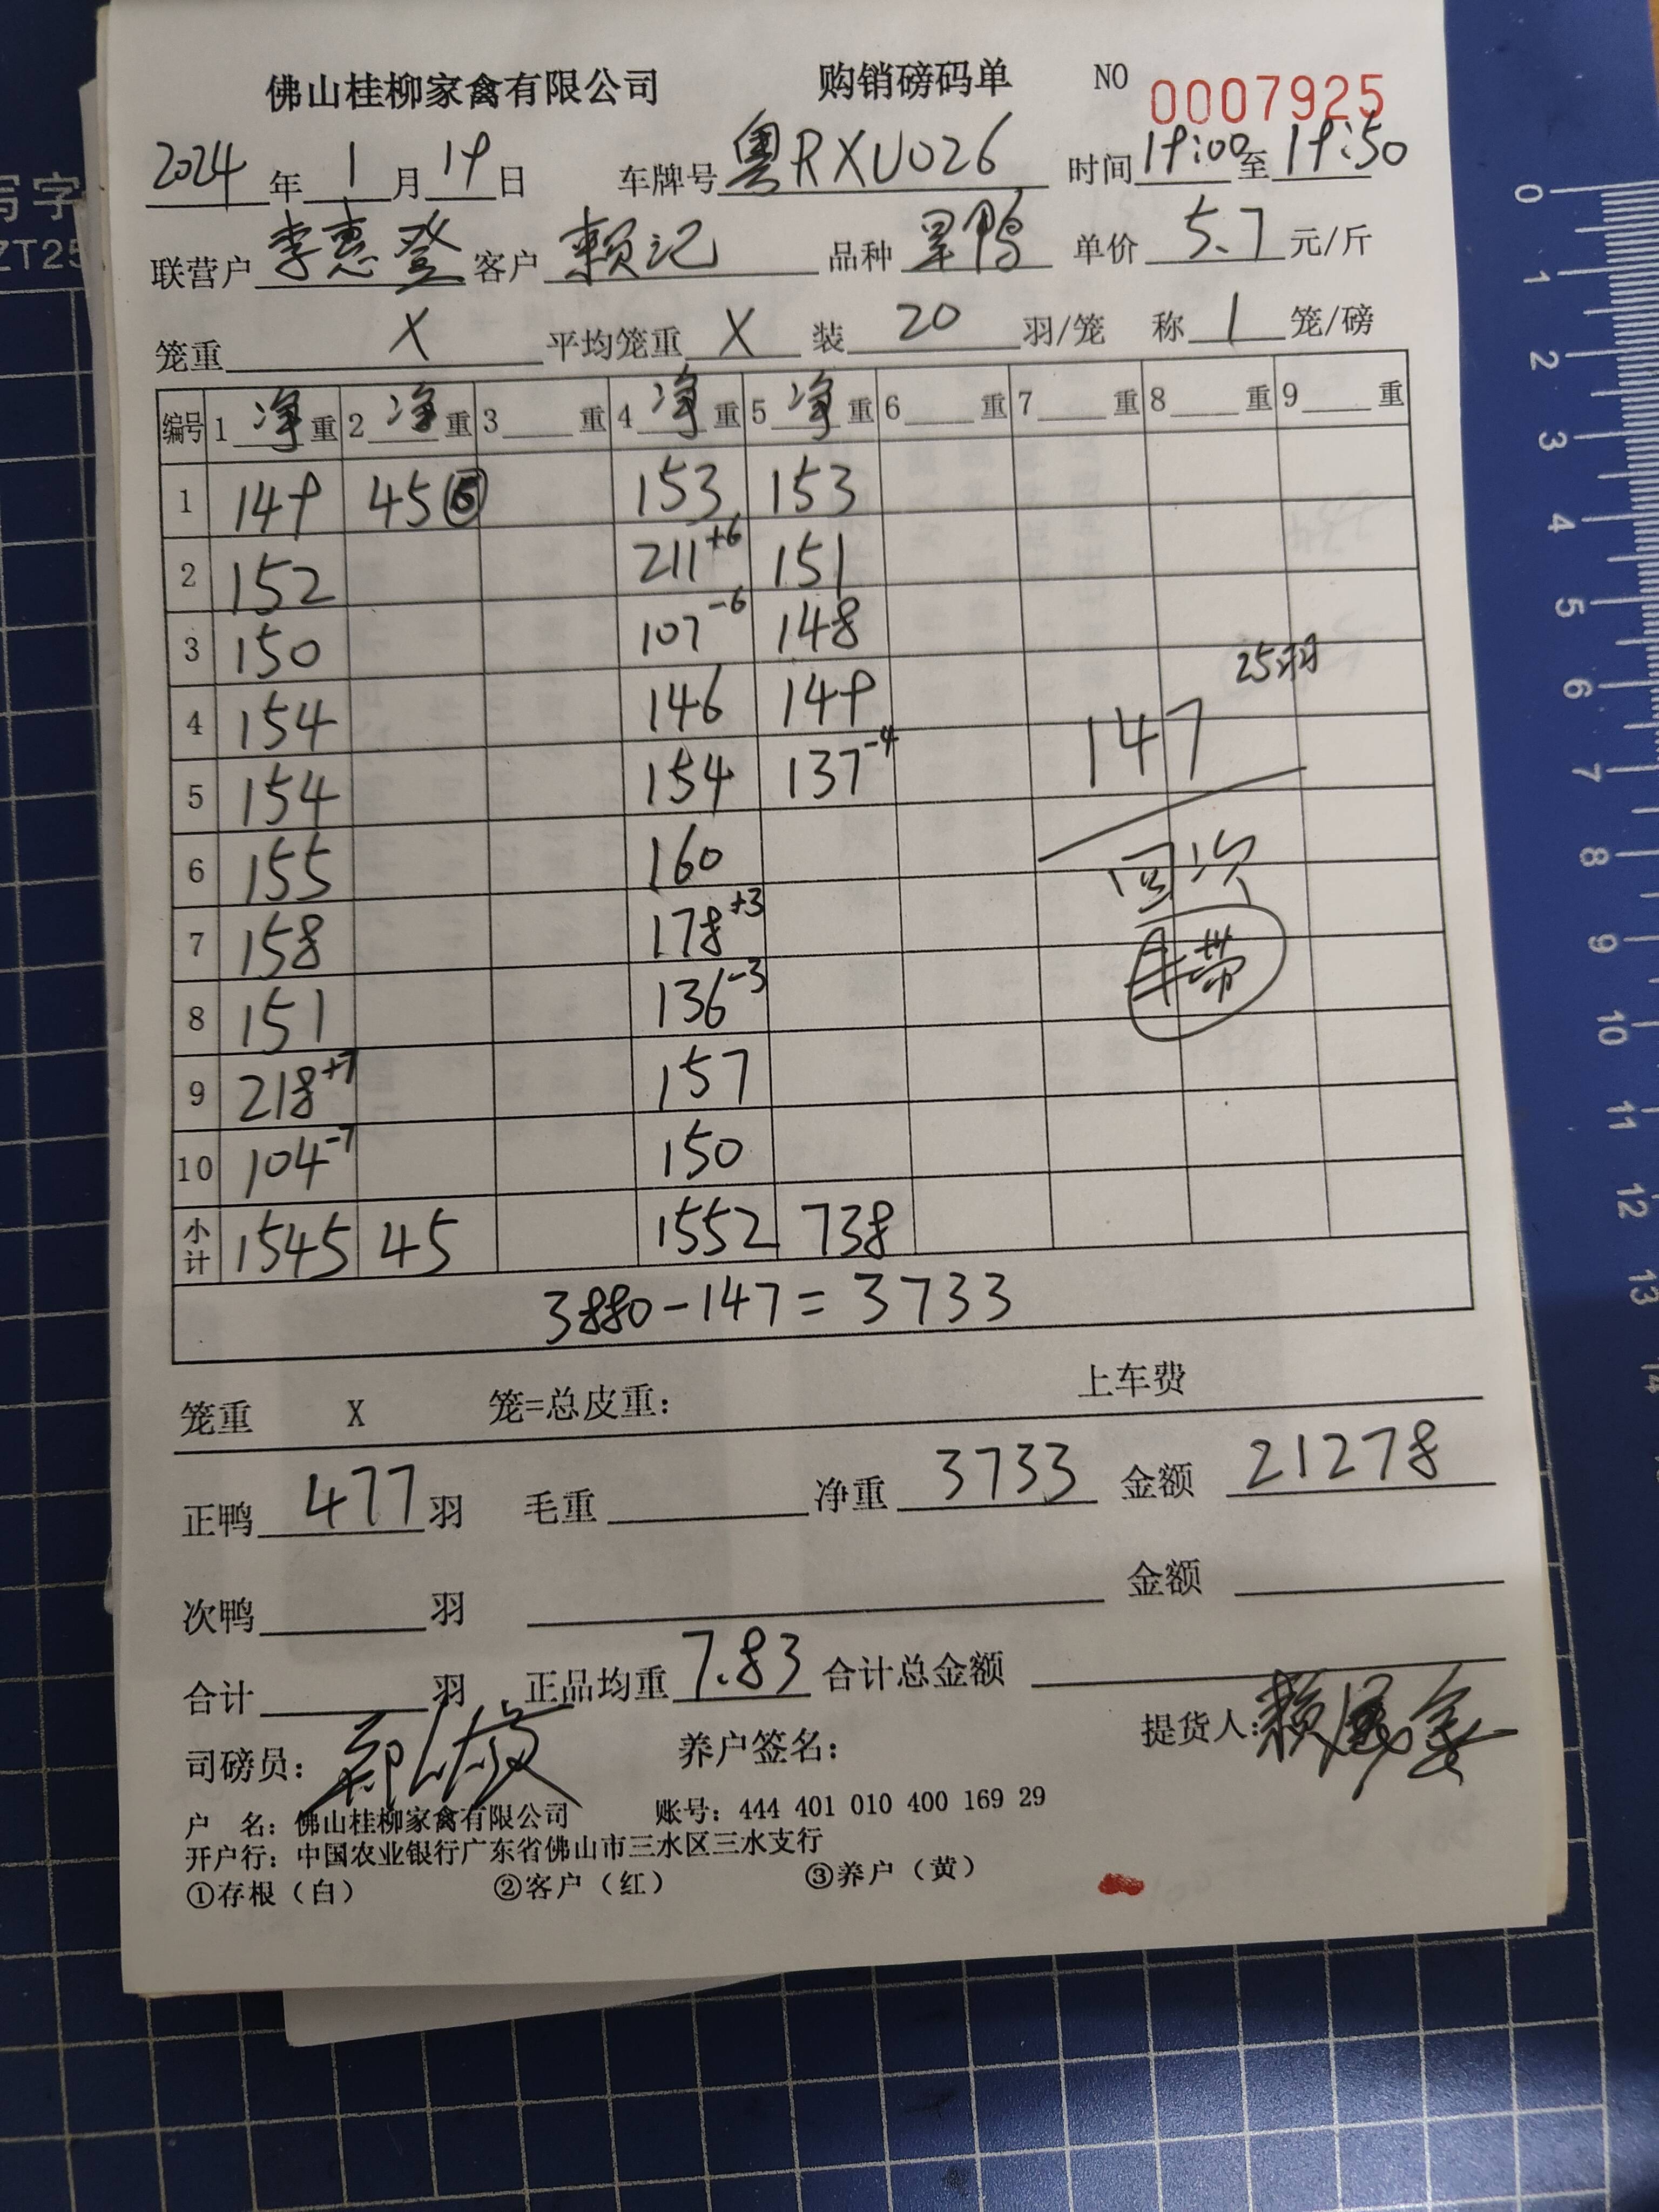 佛山桂柳家禽有限公司 购销磅码单 NO 0007925
2024年1月19日 车牌号粤RXU026 时间19:00至19:50
联营户李惠登客户赖记 品种旱鸭 单价5.7元/斤
笼重X平均笼重X装20羽/笼 称1笼/磅
编号 1净重 2净重 3重 4净重 5净重 6重 7重 8重 9重
1 149 45⑤ 153 153
2 152 211+6 151
3 150 107-6 148
25羽
4 154 146 149
147
5 154 154 137-4
6 155 160
回次
7 158 178+3
8 151 136-3
9 218+7 157
10 104-7 150
小计 1545 45 1552 738
3880-147=3733
笼重 X 笼=总皮重: 上车费
正鸭477羽 毛重 净重3733 金额21278
次鸭 羽 金额
合计 羽 正品均重7.83合计总金额
司磅员: 养户签名: 提货人:
户 名: 佛山桂柳家禽有限公司 账号: 444 401 010 400 169 29
开户行: 中国农业银行广东省佛山市三水区三水支行
①存根(白) ②客户(红) ③养户(黄)
写字
ZT25
0
1
2
3
4
5
6
7
8
9
10
11
12
13
14